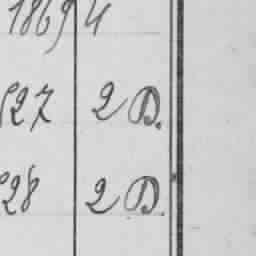 1869 4
527 2 D.
528 2 D.